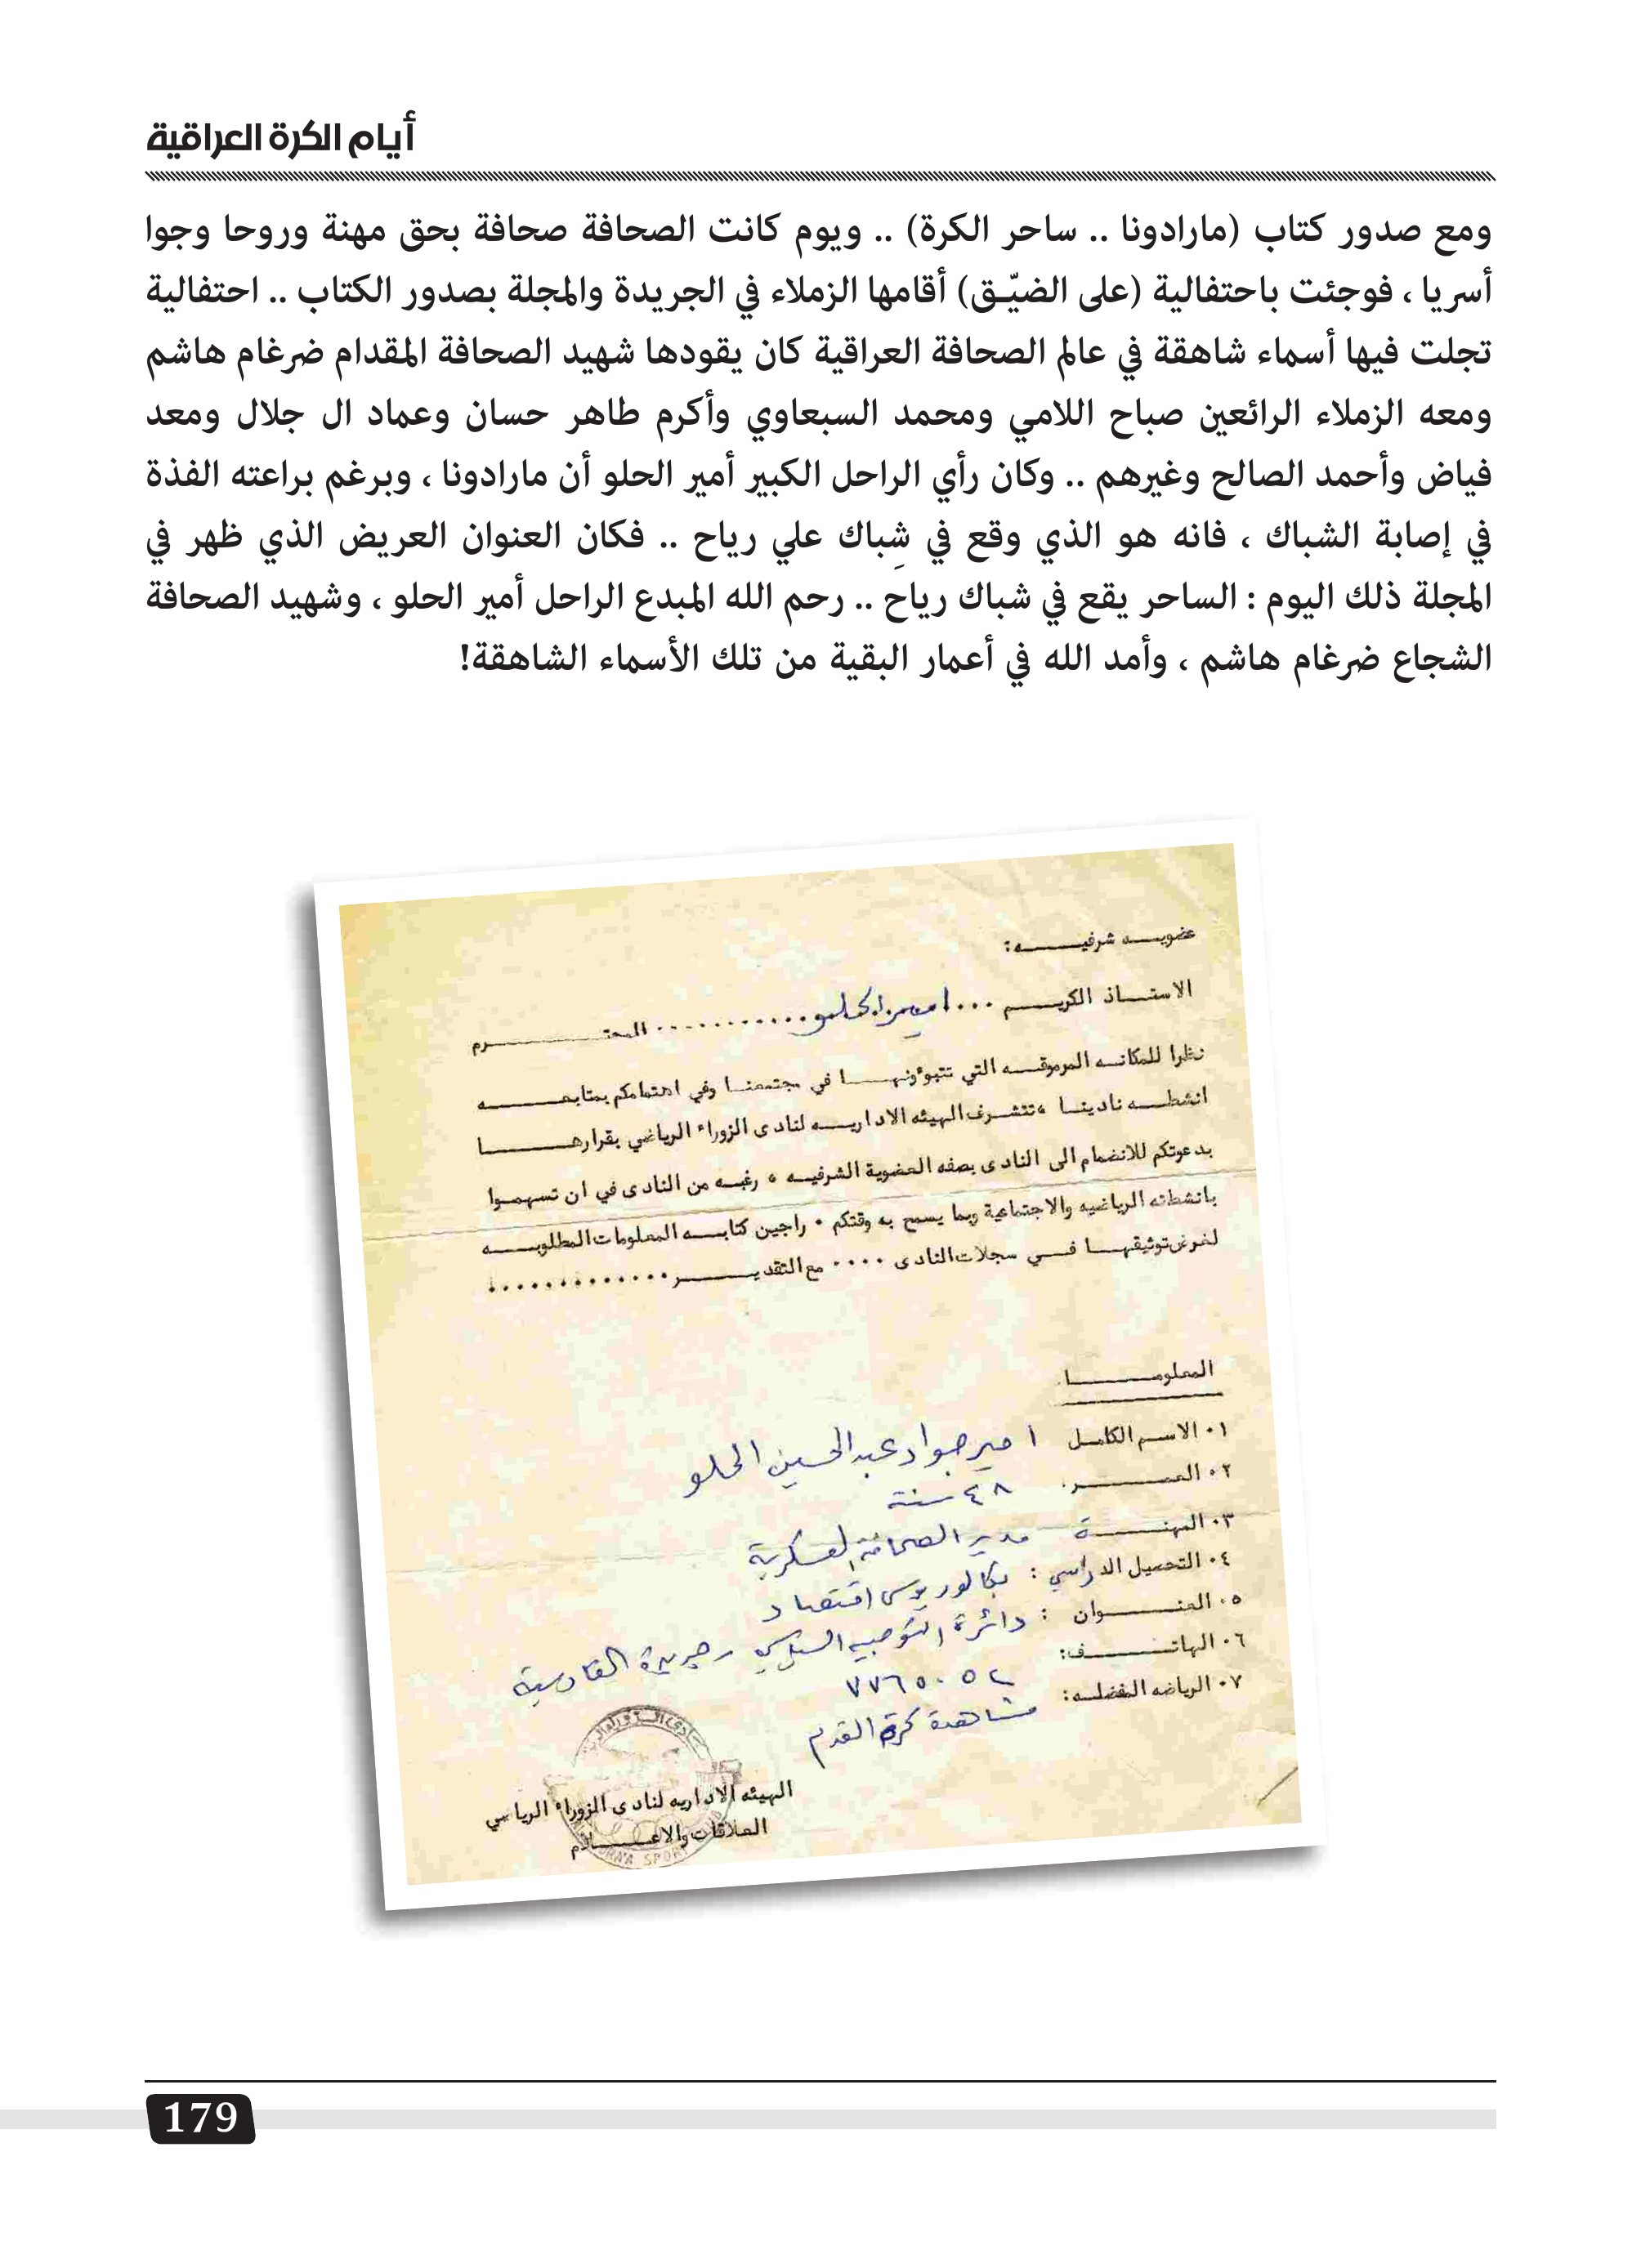 أيام الكرة العراقية
ومع صدور كتاب (مارادونا .. ساحر الكرة) .. ويوم كانت الصحافة صحافة بحق مهنة وروحا وجوا
أسريا ، فوجئت باحتفالية (على الضيّـق) أقامها الزملاء في الجريدة والمجلة بصدور الكتاب .. احتفالية
تجلت فيها أسماء شاهقة في عالم الصحافة العراقية كان يقودها شهيد الصحافة المقدام ضرغام هاشم
ومعه الزملاء الرائعين صباح اللامي ومحمد السبعاوي وأكرم طاهر حسان وعماد ال جلال ومعد
فياض وأحمد الصالح وغيرهم .. وكان رأي الراحل الكبير أمير الحلو أن مارادونا ، وبرغم براعته الفذة
في إصابة الشباك ، فانه هو الذي وقع في شِباك علي رياح .. فكان العنوان العريض الذي ظهر في
المجلة ذلك اليوم : الساحر يقع في شباك رياح .. رحم الله المبدع الراحل أمير الحلو ، وشهيد الصحافة
الشجاع ضرغام هاشم ، وأمد الله في أعمار البقية من تلك الأسماء الشاهقة!
عضويـــه شرفيـــــه :
الاستـــاذ الكريـــم ... امير الحلو ........... المحتـــــرم
نظرا للمكانـه المرموقـــه التي تتبوءونهـــا في مجتمعنـا وفي اهتمامكم بمتابعـــــه
انشطـــه نادينــا ، تتشـرف الهيئه الاداريـــه لنادى الزوراء الرياضي بقرارهـــــا
بدعوتكم للانضمام الى النادى بصفه العضوية الشرفيـه ، رغبـه من النادى في ان تسهمـوا
بانشطته الرياضيه والاجتماعية وبما يسمح به وقتكم . راجين كتابـــه المعلومات المطلوبـــه
لغرض توثيقهـــا فـــي سجلات النادى .... مع التقديـــــر .............
المعلومـــــا
١. الاسـم الكامـل امير جواد عبد الحسين الحلو
٢. العمـــــر. ٤٨ سنة
٣. المهنـــــة مدير الصحافة العسكرية
٤. التحصيل الدراسي : بكالوريوس اقتصاد
٥. العنـــــوان : دائرة التوجيه السياسي / جريدة القادسية
٦. الهاتـــــف: ٧٧٦٥٠٥٢
٧. الرياضه المفضلـه : مشاهدة كرة القدم
الهيئه الاداريه لنادى الزوراء الرياضي
العلاقات والاعـــلام
179